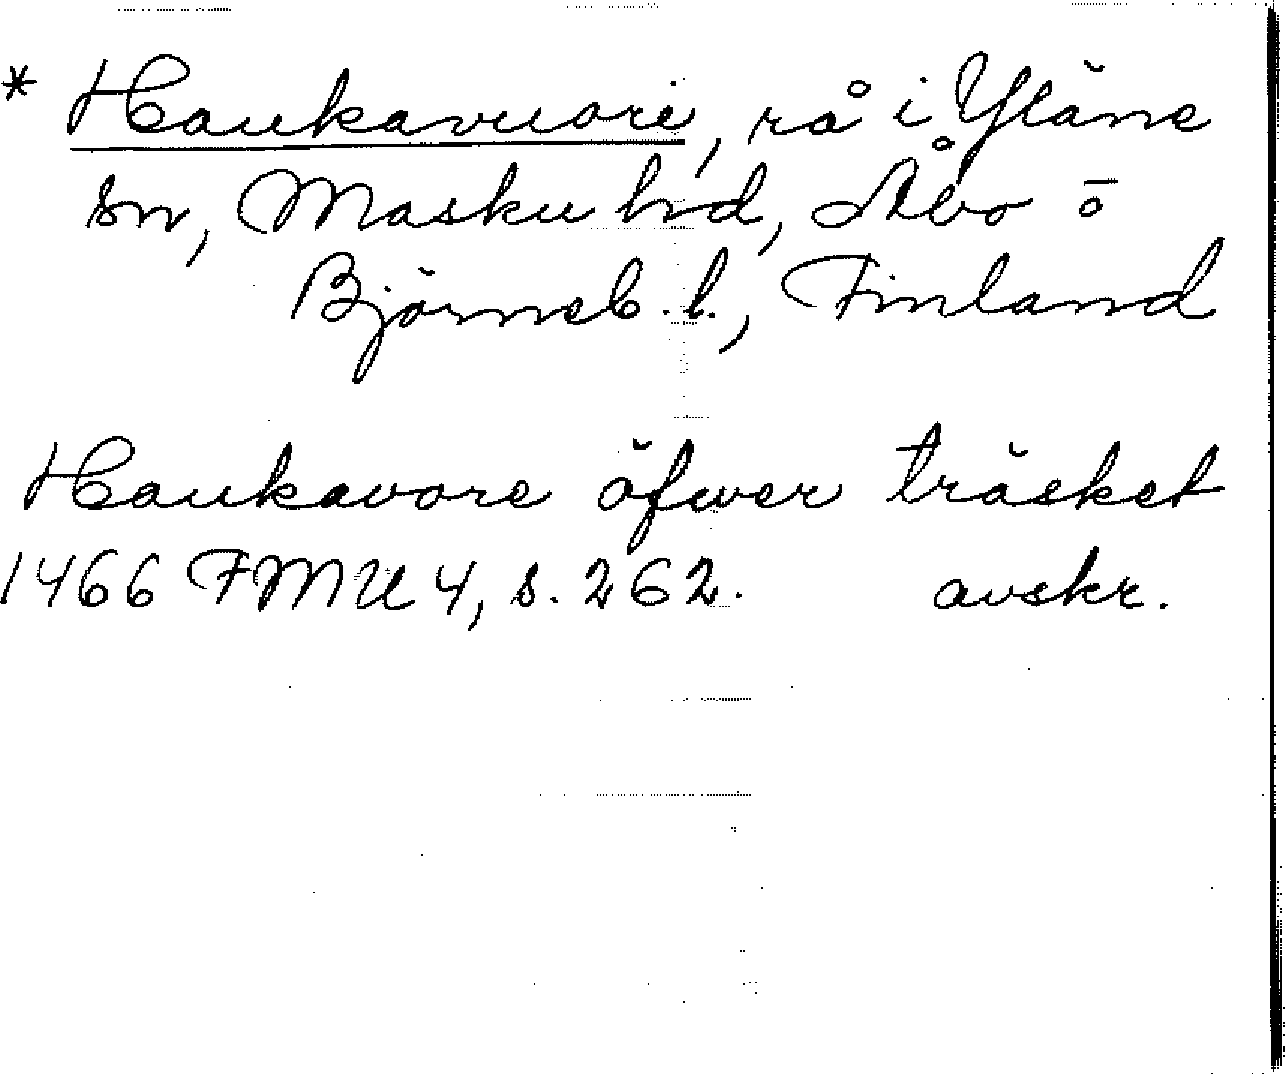 * Haukavuori, rå i Yläne
sn, Masku hd, Åbo o
Björneb. l., Finland
Haukavore öfwer träsket
1466 FMU 4, s. 262. avskr.